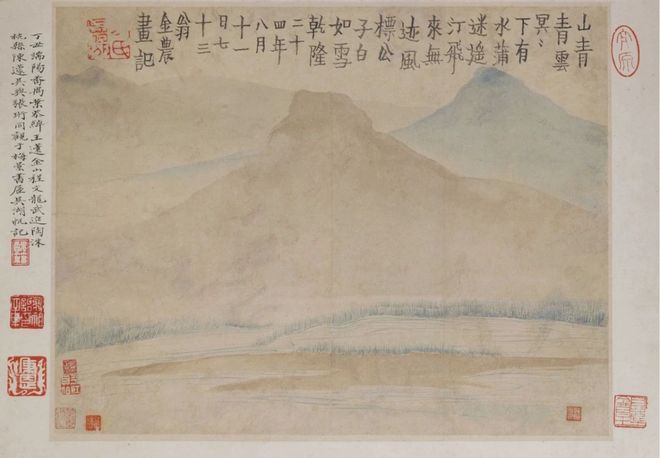 山青
青雲
冥〻
下有
水蒲
迷遙
汀飛
來無
迹風
標公
子白
如雪
乾隆
二十
四年
八月
十一
日七
十三
翁
金農
畫記
丁丑端陽番禺葉恭綽王金山程文龍武進陶洙
杭縣陳吳興張珩同觀于梅景書屋吳湖帆記